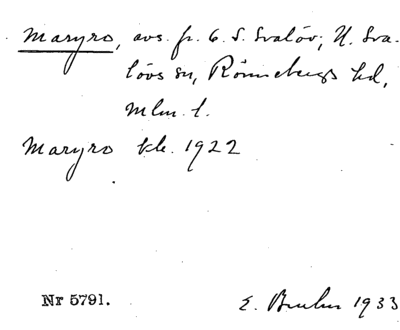 Maryro, avs. fr. 6. S. Svalöv, N. Sva-
lövs sn, Rönnebergs hd,
Mlm. l.
Maryro kk. 1922
Nr 5791.
E. Bruhn 1933